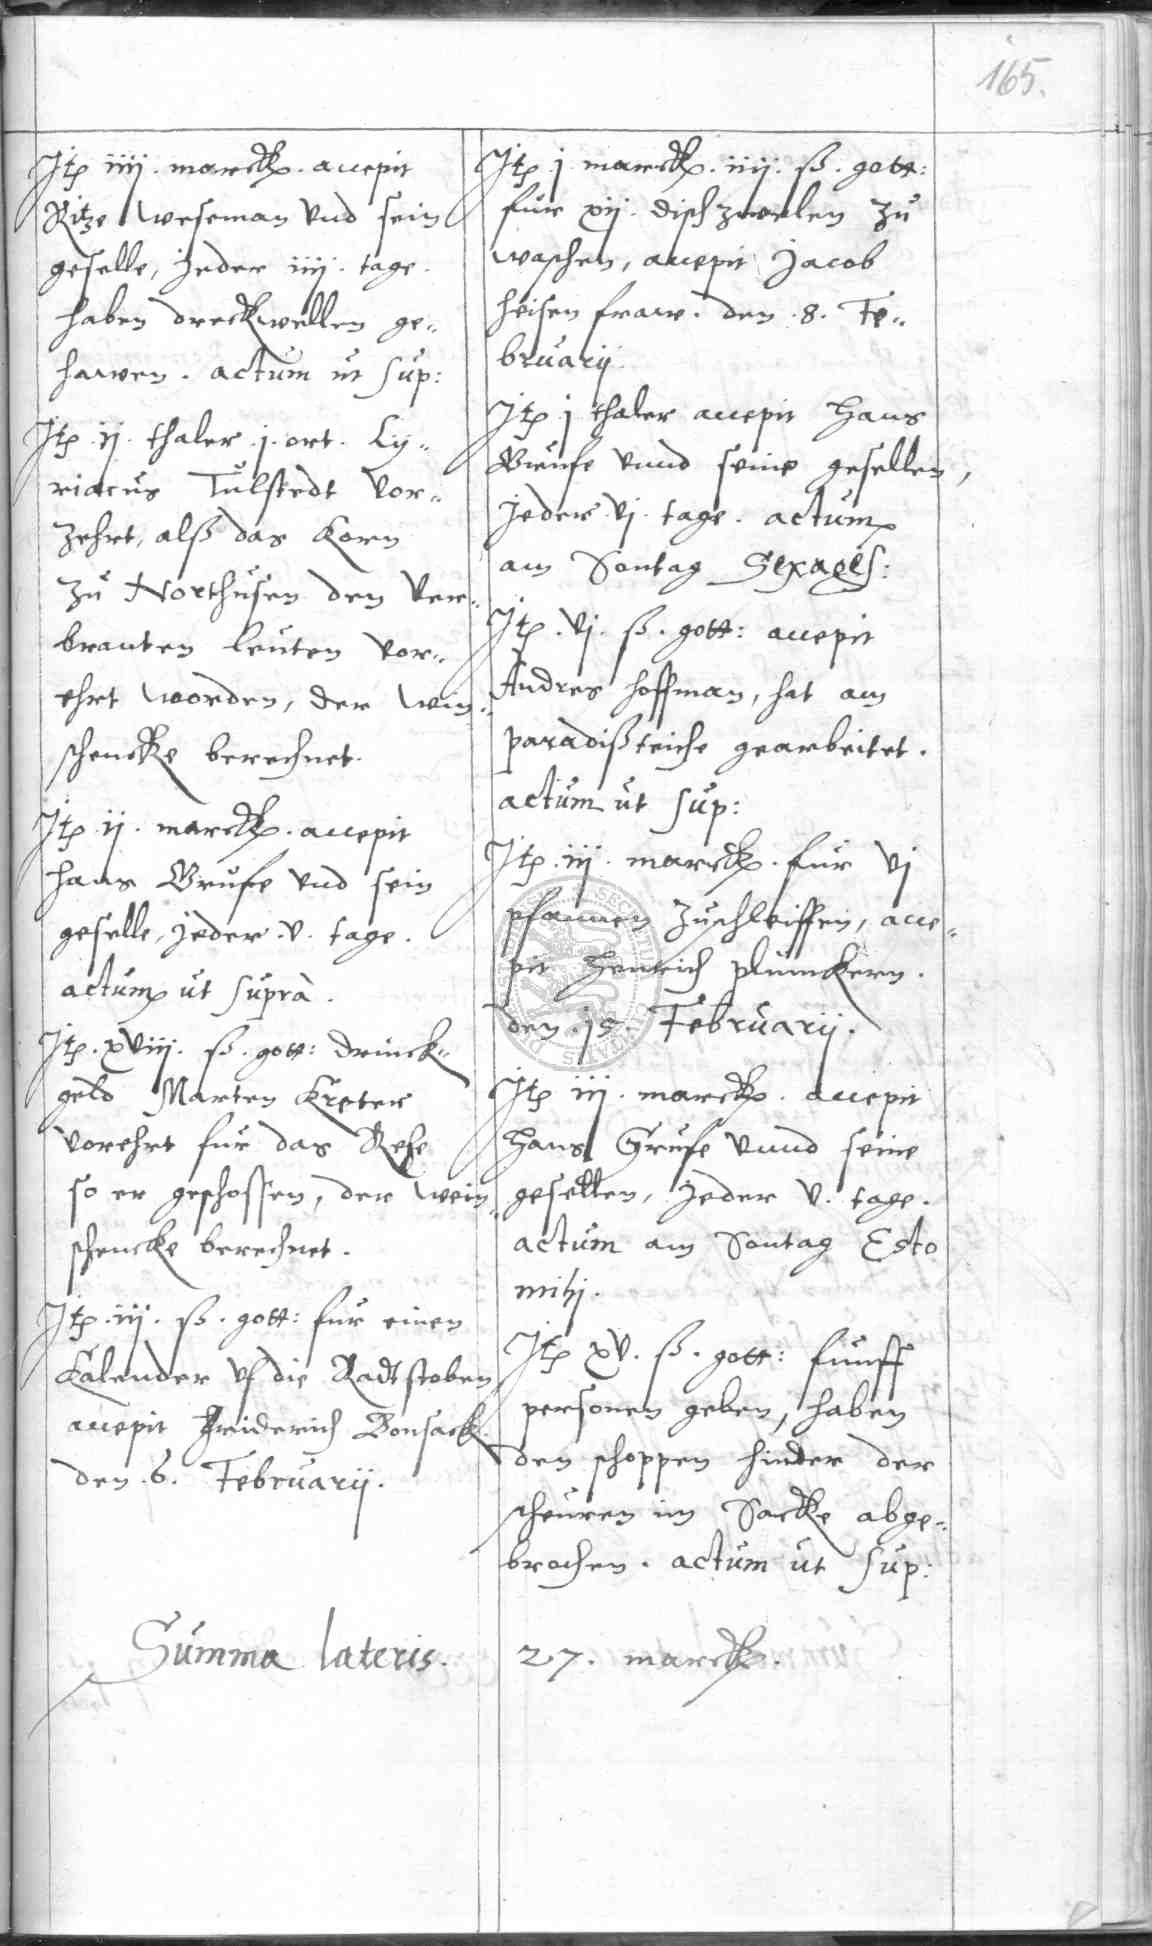 165.
Itꝑ iiij. marckꝭ. accepit
Ritze Weseman vnd sein
geselle, Jeder iiij. tage.
haben dreckwellen ge„
hawen. actum ut sup:
Itꝑ ij. thaler j. ort. Cy„
riacus Tulstedt vor„
zehrt, alß das Korn
zu Northusen den ver„
branten leuten vor„
ehrt worden, der Win„
schencke berechnet.
Itꝑ ij. marckꝭ. accepit
hans Grufe vnd sein
geselle, Jeder v. tage.
actum ut supra.
Itꝑ. xviij. ß. gott: drinck„
geld Marten Kreter
vorehrt fur das Rehe
so er geschossen, der Wein„
schencke berechnet.
Itꝑ. iij. ß. gott: fur einen
Kalender vf die Radtstoben
accepit Friderich Bonsack.
den 6. Februarij.
Itꝑ j marckꝭ. iiij. ß. gott:
fur xij. dischzwelen zu
waschen, accepit Jacob
heisen fraw. den .8. Fe„
bruarij.
Itꝑ j thaler accepit Hans
Grufe vnnd seine gesellen,
Jeder vj. tage. actum
am Sontag Sexages:
Itꝑ. vj. ß. gott: accepit
Andres hoffman, hat am
paradißteiche gearbeitet.
actum ut sup:
Itꝑ. iij. marckꝭ. fur vj
pfannen zuschleiffen, acce„
pit Henrich plunckern.
den .15. Februarij.
Itꝑ iij. marckꝭ. accepit
Hans Grufe vnnd seine
gesellen, Jeder v. tage.
actum am Sontag Esto
mihj.
Itꝑ xv. ß. gott: funff
personen geben, haben
den schoppen hinder der
scheuren im Sacke abge„
brochen. actum ut sup:
Summa lateris. 27. marckꝭ.